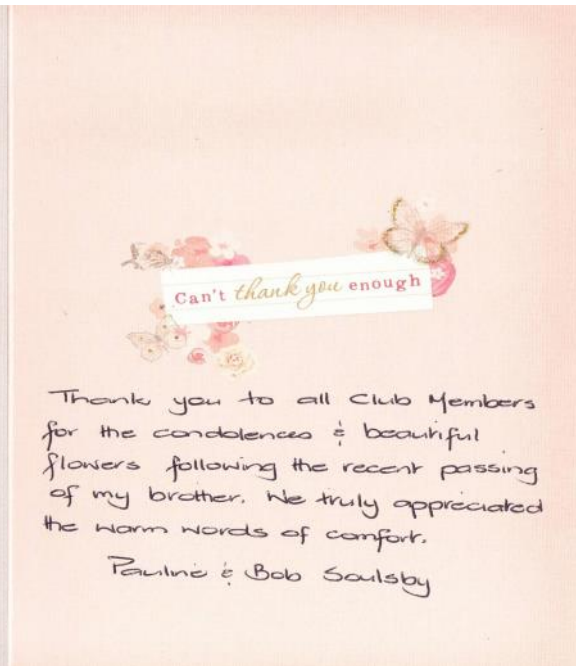 Can't thank you enough
Thank you to all Club Members
for the condolences & beautiful
flowers following the recent passing
of my brother. We truly appreciated
the warm words of comfort.
Pauline & Bob Soulsby